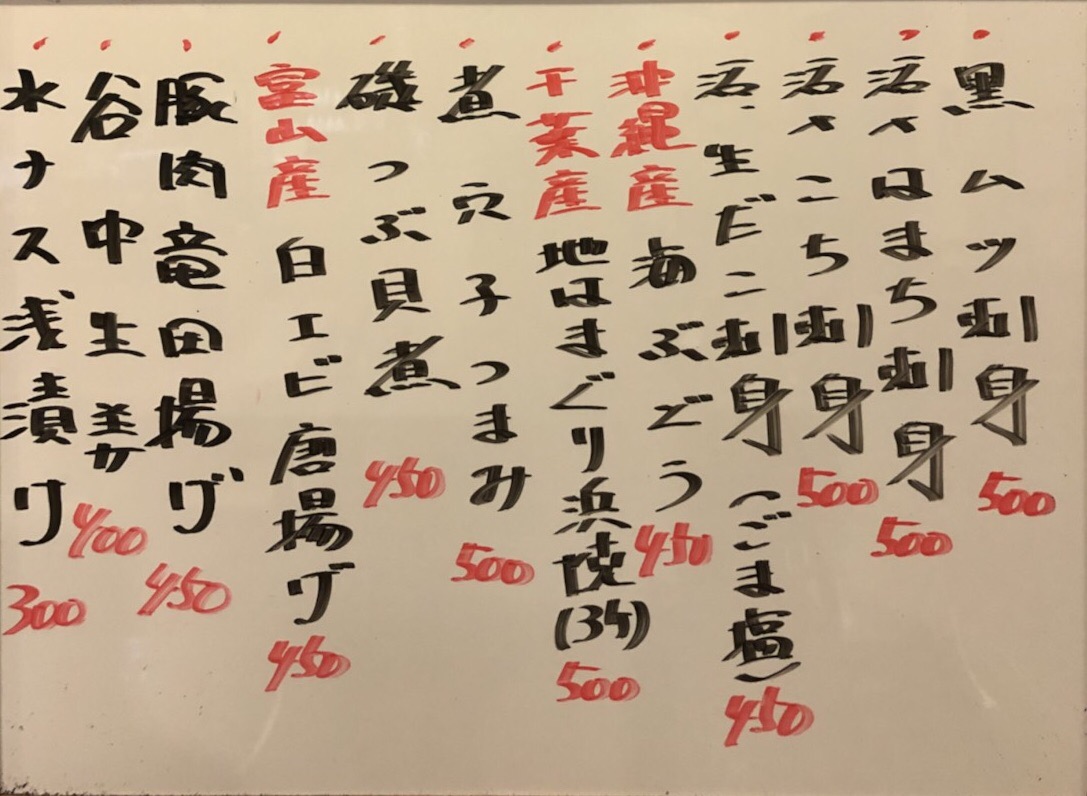 黒ムツ刺身 500
活〆はまち刺身 500
活〆こち刺身 500
活、生だこ刺身(ごま塩) 450
沖縄産海ぶどう 450
千葉産地はまぐり浜焼(3ケ) 500
煮穴子つまみ 500
磯つぶ貝煮 450
富山産白エビ唐揚げ 450
豚肉竜田揚げ 450
谷中生姜 400
水ナス浅漬け 300